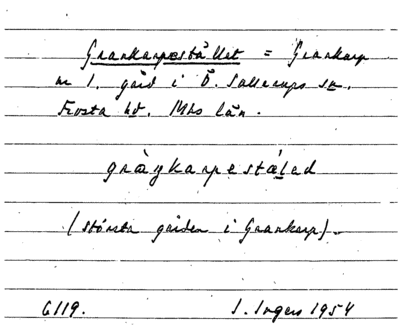 Grankarpestället = Grankarp
nr 1. gård i Ö. Sallerups sn.
Frosta hd. Mhs län.
gräykarpestäled
(största gården i Grankarp).
6119. I. Ingers 1954